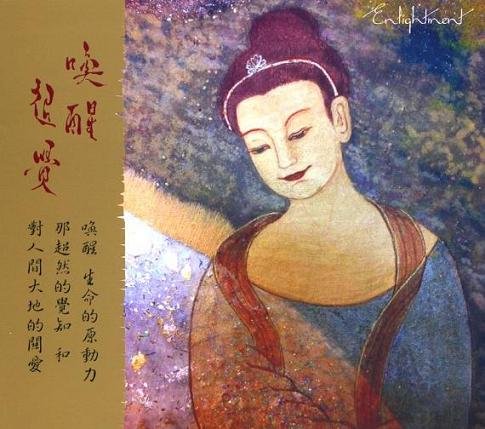 喚醒
超覺
喚醒 生命的原動力
那超然的覺知 和
對人間大地的關愛
Enlightment